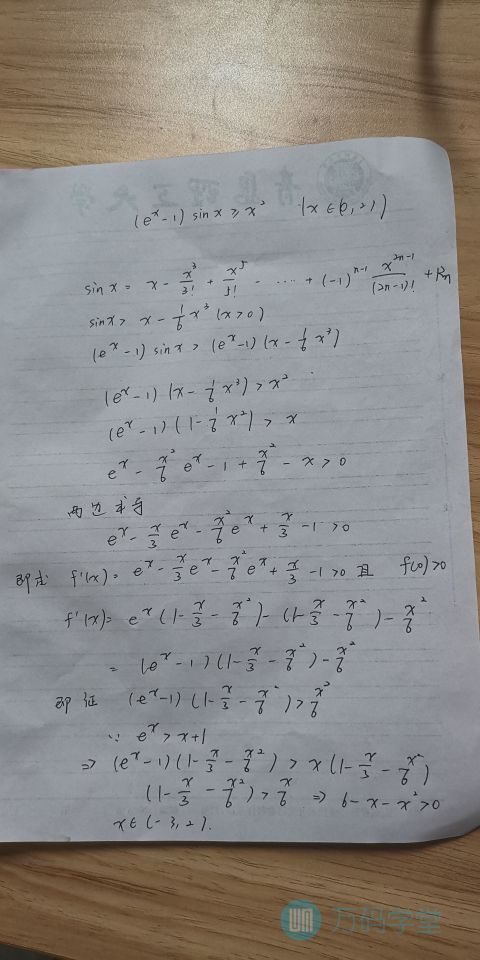 青岛理工大学
(e^x - 1) sinx ≥ x² (x ∈ (0, 2))
sinx = x - x³/3! + x⁵/5! - ..... + (-1)^{n-1} x^{2n-1}/(2n-1)! + Rn
sinx > x - 1/6 x³ (x>0)
(e^x - 1) sinx > (e^x - 1)(x - 1/6 x³)
(e^x - 1)(x - 1/6 x³) > x²
(e^x - 1)(1 - 1/6 x²) > x
e^x - x²/6 e^x - 1 + x²/6 - x > 0
两边求导
e^x - x/3 e^x - x²/6 e^x + x/3 - 1 > 0
即求 f'(x) = e^x - x/3 e^x - x²/6 e^x + x/3 - 1 > 0 且 f(0) > 0
f'(x) = e^x (1 - x/3 - x²/6) - (1 - x/3 - x²/6) - x²/6
= (e^x - 1)(1 - x/3 - x²/6) - x²/6
即证 (e^x - 1)(1 - x/3 - x²/6) > x²/6
∵ e^x > x+1
⇒ (e^x - 1)(1 - x/3 - x²/6) > x(1 - x/3 - x²/6)
(1 - x/3 - x²/6) > x/6 ⇒ 6 - x - x² > 0
x ∈ (-3, 2).
万码学堂